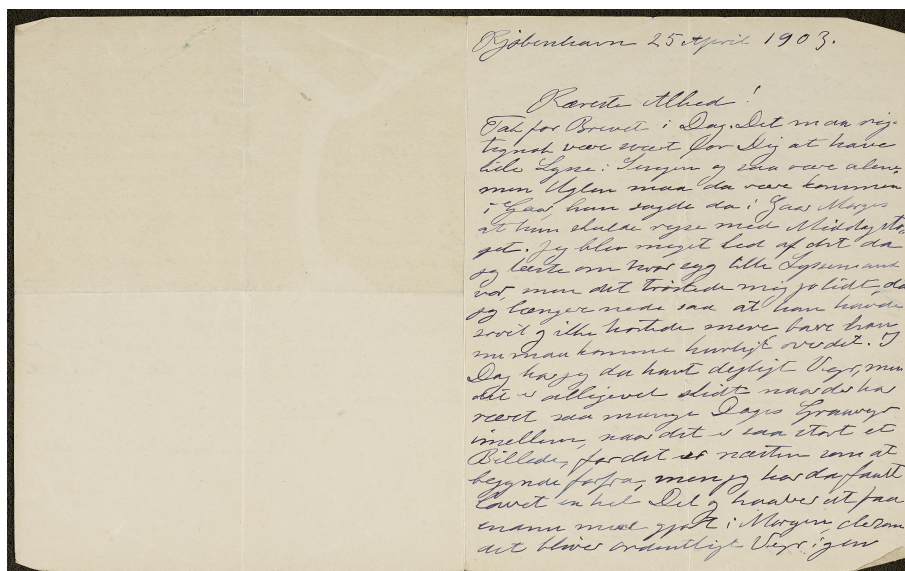 Kjøbenhavn 25 April 1903.
Kæreste Alhed!
Tak for Brevet i Dag. Det maa rig-
tignok være svært for Dig at have
lille Lysse i Sengen og saa være alene
men Uglen maa da være kommen
i Gaar, hun sagde da i Gaar Morges
at hun skulde rejse med Middagsto-
get. Jeg blev meget ked af det da
jeg læste om hvor syg lille Lysemand
var, men det trøstede mig jo lidt, da
jeg længer nede saa at han havde
sovet og ikke hostede mere bare han
nu maa komme hurtigt over det. I
Dag har jeg da havt dejligt Vejr, men
det er alligevel skidt naar der har
været saa mange Dages Graavejr
imellem, naar det er saa stort et
Billede, for det er næsten som at
begynde forfra, men jeg har dog faaet
lavet en hel Del og haaber at faa
enamn mere gjort i Morgen, dersom
det bliver ordentligt Vejr igen